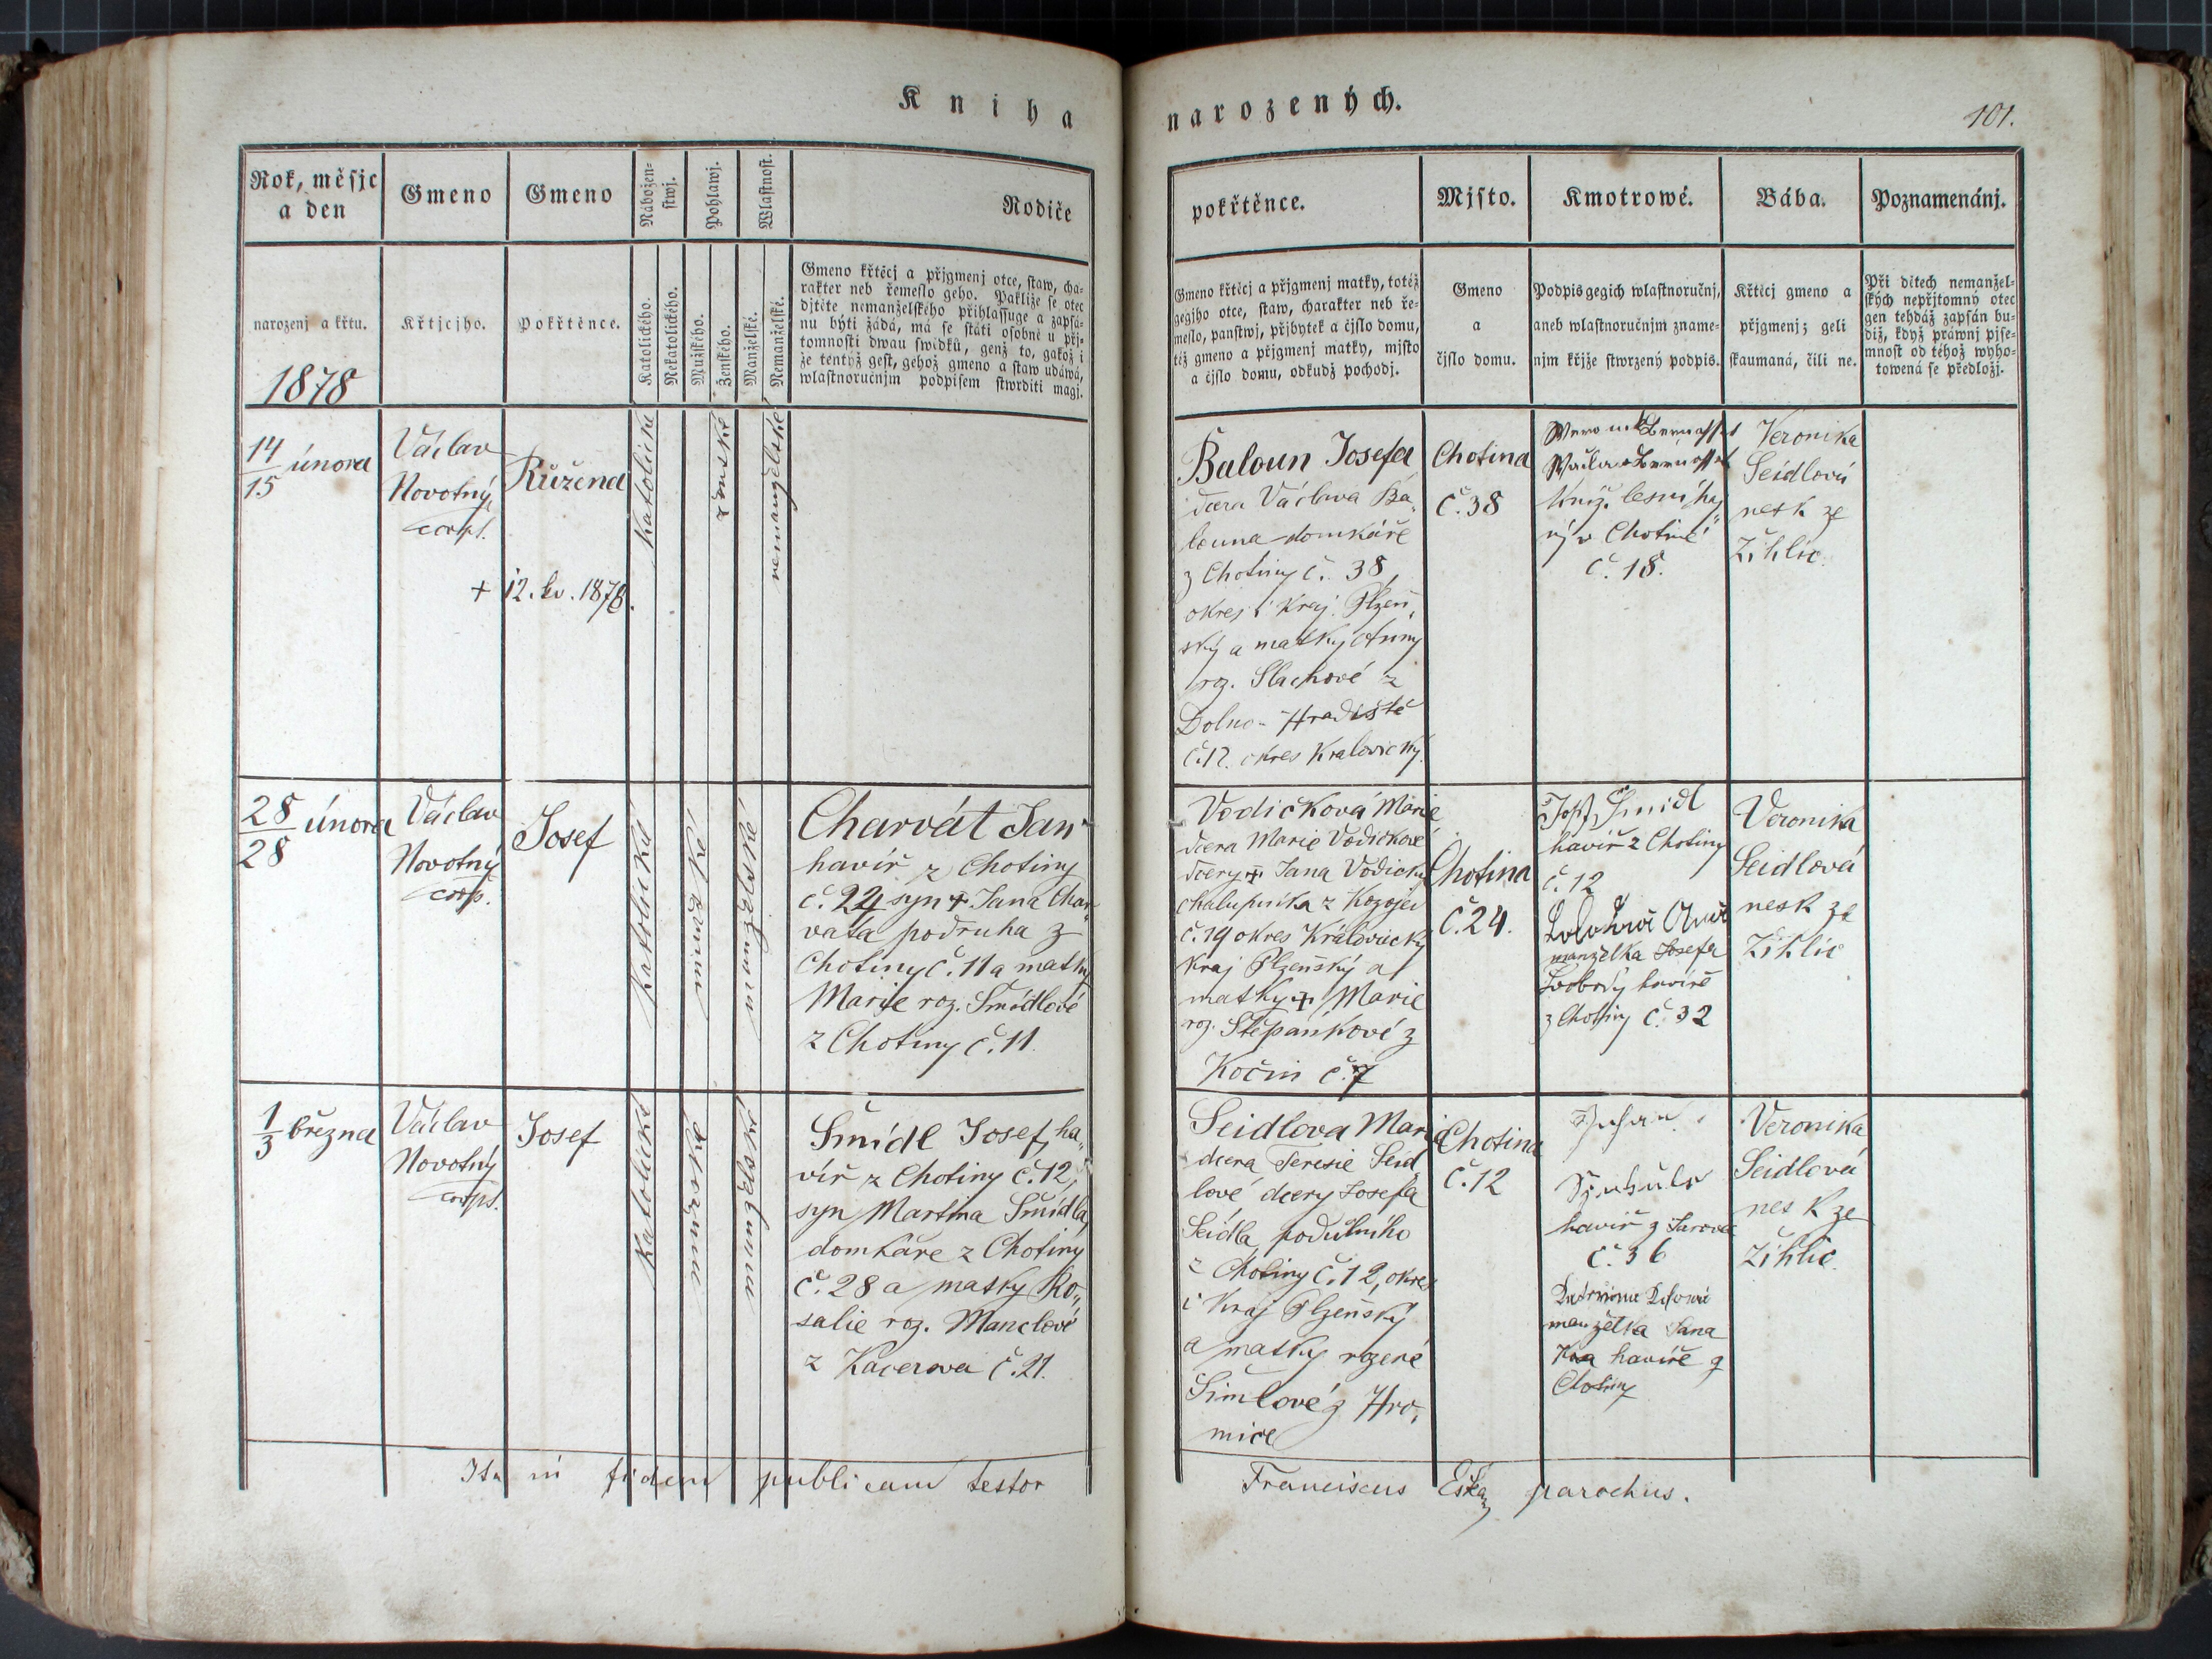 Kniha
narozených.
101.
Rok, měsjc
a den
Gmeno
Gmeno
Nábožen-
stwj.
Pohlawj.
Wlastnost.
Rodiče
pokřtěnce.
Mjsto.
Kmotrowé.
Bába.
Poznamenánj.
narozenj a křtu.
1878
Křtjcjho.
Pokřtěnce.
Katolického.
Nekatolického.
Mužského.
Ženského.
Manželské.
Nemanželské.
Gmeno křtěcj a přjgmenj otce, staw, cha-
rakter neb řemeslo geho. Pakliže se otec
djtěte nemanželského přihlassuge a zapsá-
nu býti žádá, má se státi osobně u přj-
tomnosti dwau swědků, genž to, gakož i
že tentýž gest, gehož gmeno a staw udáwá,
wlastnoručnjm podpisem stwrditi magj.
Gmeno křtěcj a přjgmenj matky, totéž
gegjho otce, staw, charakter neb ře-
meslo, panstwj, přjbytek a čjslo domu,
též gmeno a přjgmenj matky, mjsto
a čjslo domu, odkudž pochodj.
Gmeno
a
čjslo domu.
Podpis gegich wlastnoručnj,
aneb wlastnoručnjm zname-
njm křjže stwrzený podpis.
Křtěcj gmeno a
přjgmenj; geli
skaumaná, čili ne.
Při dětech nemanžel-
ských nepřjtomný otec
gen tehdáž zapsán bu-
diž, když práwnj pjse-
mnost od téhož wyho-
towená se předložj.
14
15
února
Václav
Novotný
Růžena
+ 12. kv. 1878.
katolické
ženské
nemanželské
Baloun Josefa
dcera Václava Ba„
louna domkáře
z Chotiny č. 38,
okres i Kraj Plzeň„
ský a matky Anny
roz. Slachové z
Dolno-Hradiště
č.12. okres Kralovický.
Chotina
č. 38
kníž. lesní haj„
ný v Chotině
č. 18.
Veronika
Seidlová
nesk ze
Žihlic.
28
28
února
Václav
Novotný
Josef
katolické
mužské
manželské
Charvát Jan
havíř z Chotiny
č. 24 syn + Jana Char„
vata podruha z
Chotiny č. 11 a matky
Marije roz. Šmídlové
z Chotiny č. 11.
Vodičková Marie
dcera Marie Vodičkové
dcery + Jana Vodičky
chalupníka z Kozojed
č. 19 okres Královický
kraj Plzeňský a
matky + Marie
roz. Štěpánkové z
Kočin č. 7
Chotina
č. 24.
Josef Šmidl
havíř z Chotiny
č. 12
manželka Josefa
Svobody havíře
z Chotiny č. 32
Veronika
Seidlová
nesk ze
Žihlic
1
3
března
Václav
Novotný
Josef
katolické
mužské
manželské
Šmídl Josef, ha„
víř z Chotiny č. 12,
syn Martina Šmídla,
domkáře z Chotiny
č. 28 a matky Ro„
salie roz. Manclové
z Kacerova č. 21.
Seidlova Marie
dcera Teresie Seid„
lové dcery Josefa
Seidla, podučního
z Chotiny č. 12, okres
i Kraj Plzeňský
a matky rozené
Šimlové z Hro„
mice
Chotina
č. 12
havíř z
č. 36
manželka Jana
havíře z
Chotiny
Veronika
Seidlová
nesk ze
Žihlic.
Ita in fidem publicam testor
Franciscus parochus.